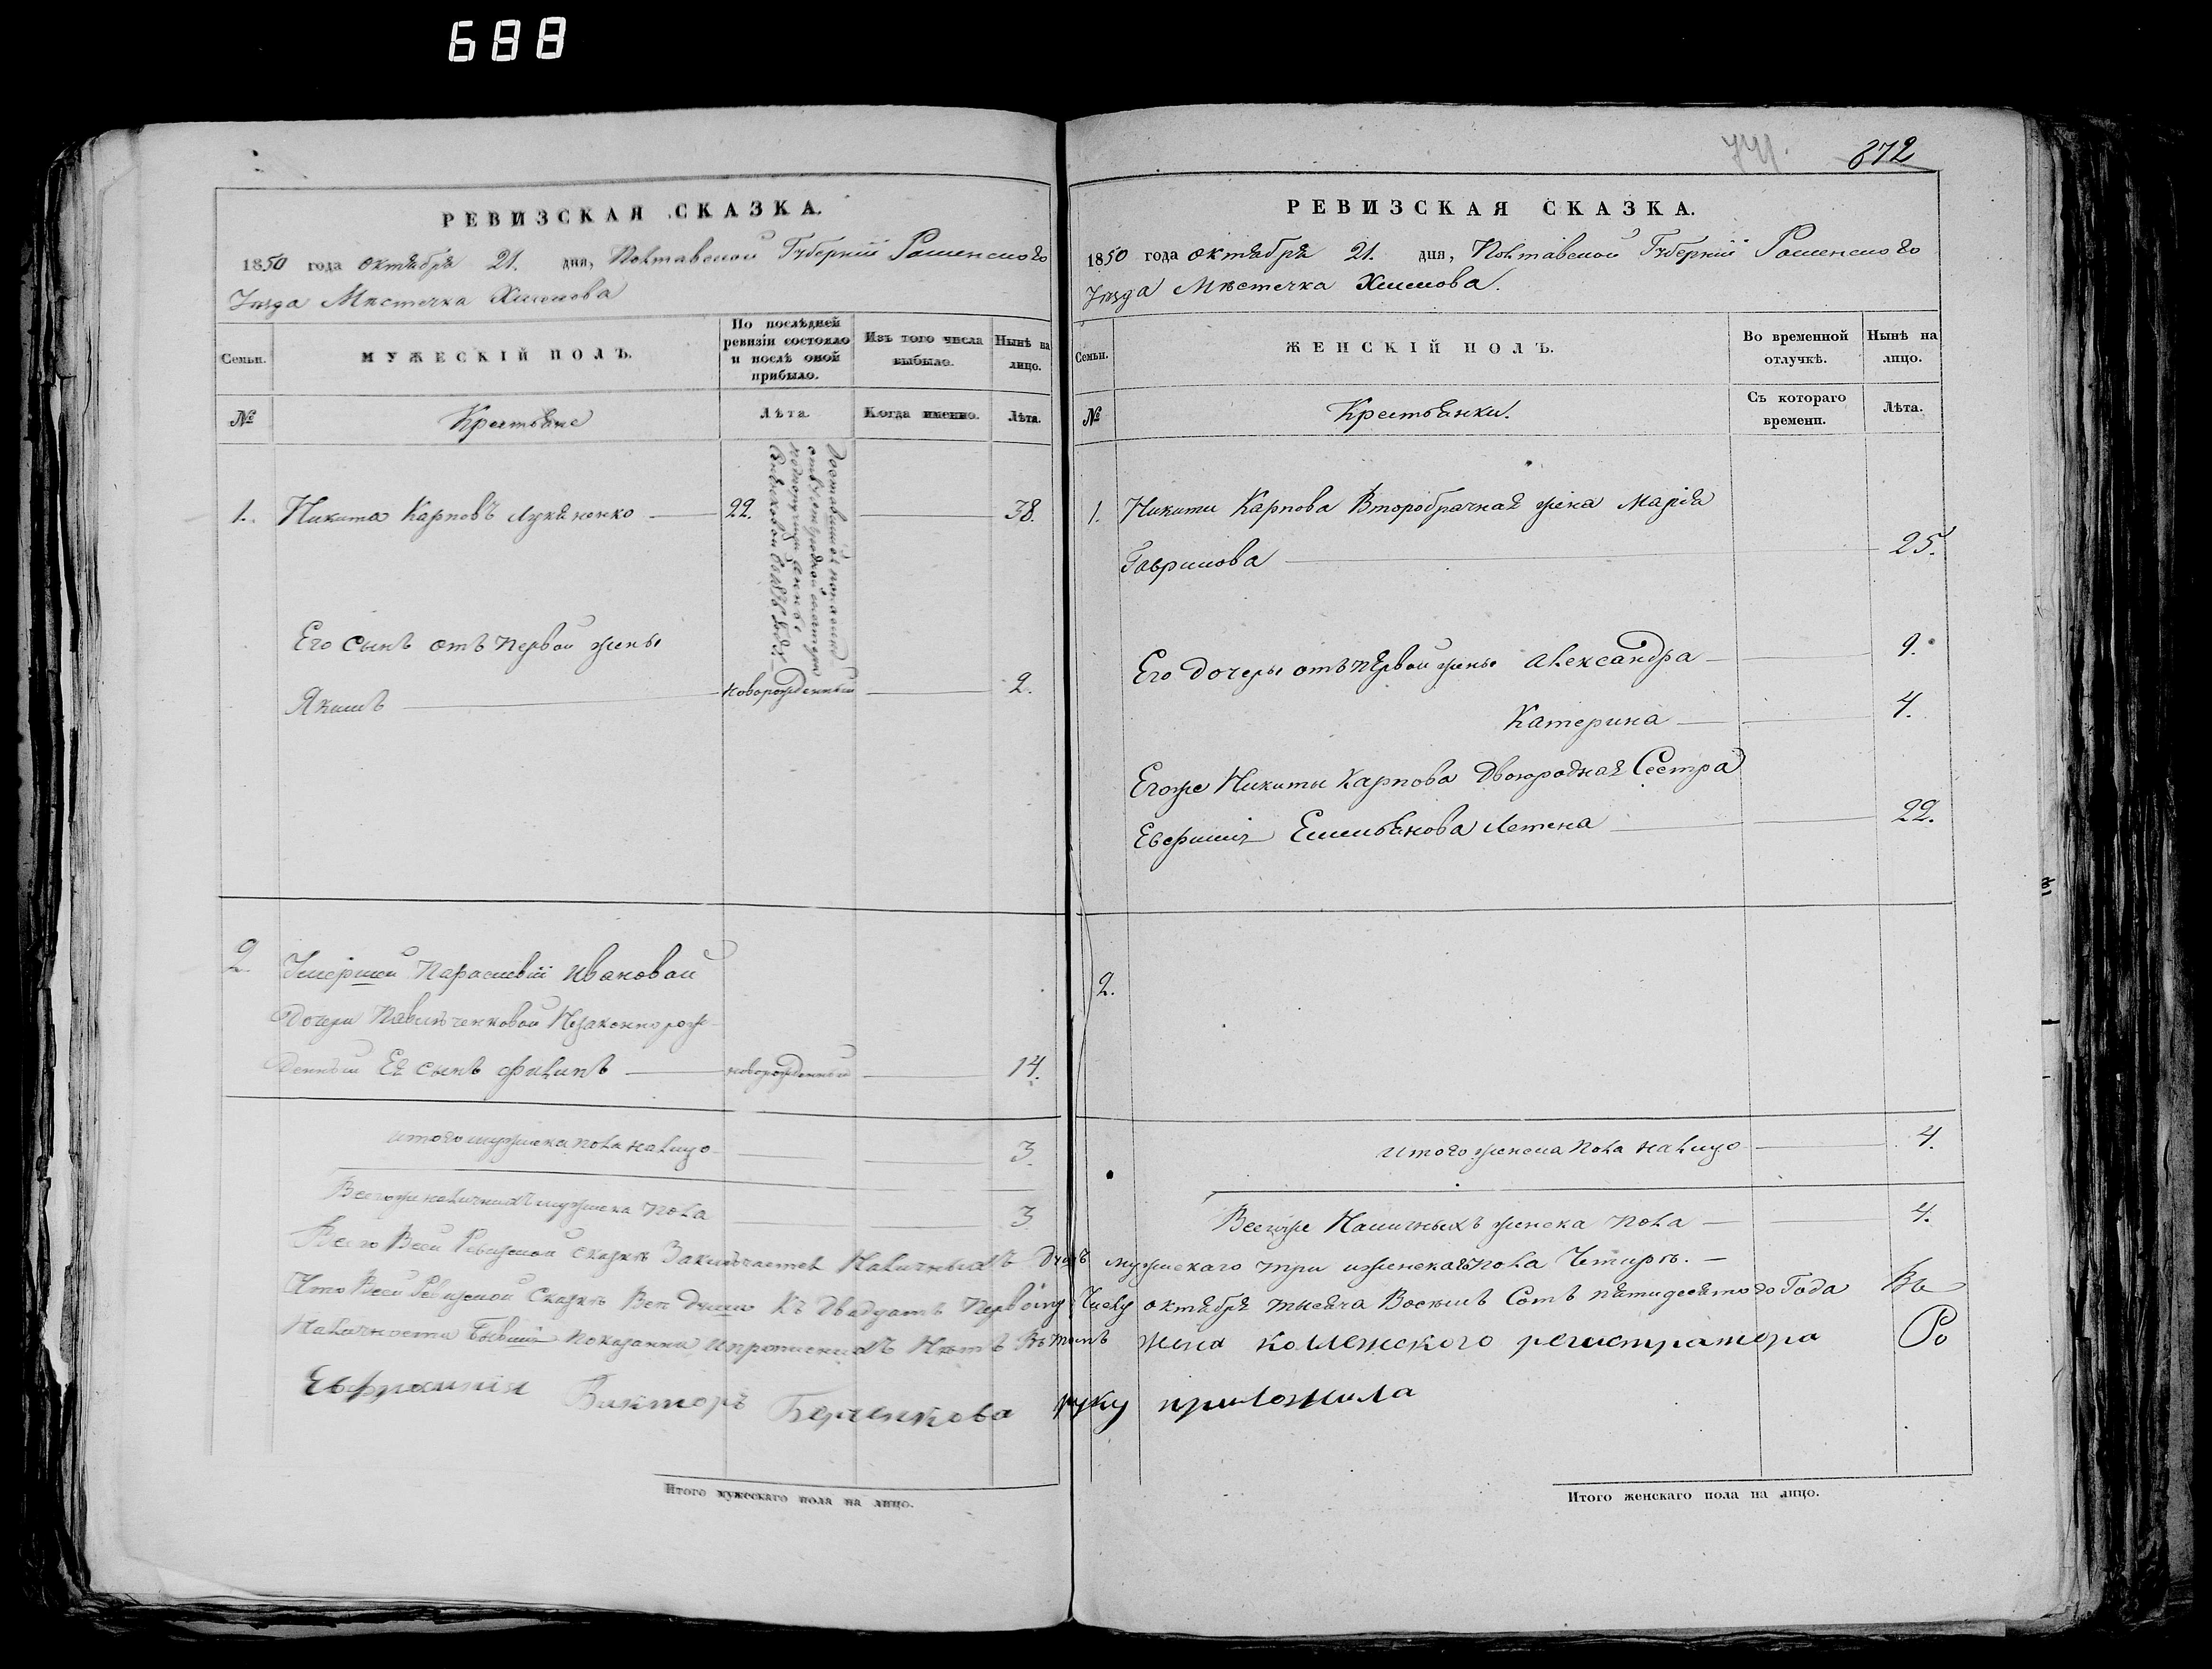 688
872
РЕВИЗСКАЯ СКАЗКА.
1850 года октября 21. дня, Полтавской Губернии Роменского
Уезда Местечка Хмелова
Семьи. МУЖЕСКІЙ ПОЛЪ. По послѣдней ревизіи состояло и послѣ оной прибыло. Изъ того числа выбыло. Нынѣ на лицо.
№ Крестьяне Лѣта. Когда именно. Лѣта.
1. Никита Карповъ Лукяненко 22. 38.
Его сынъ отъ первой жены
Якимъ новорожденный 2.
2. Умершей Параскевіи Ивановой
дочери Незаконнорож
денный Ея сынъ Филипъ новорожденный 14.
итого мужеска пола налицо 3.
Всего же наличныхъ мужеска пола 3
Итого мужескаго пола на лицо.
РЕВИЗСКАЯ СКАЗКА.
1850 года октября 21. дня, Полтавской Губернии Роменского
Уезда Местечка Хмелова.
Семьи. ЖЕНСКІЙ ПОЛЪ. Во временной отлучкѣ. Нынѣ на лицо.
№ Крестьянки. Съ котораго времени. Лѣта.
1. Никиты Карпова Второбрачная жена Марія
Гаврилова 25.
Его дочеры отъ первой жены Александра 9.
Катерина 4.
Егоже Никиты Карпова Двоюродная Сестра
Емельянова 22.
2.
итого женска пола налицо 4.
Всего же Наличныхъ женска пола 4.
Всего Всей Ревизской сказке Заключается Наличныхъ Душъ мужескаго три и женскаго пола Четыре.
Что Всей Ревизской Сказке Все души Къ Двадцать Первому Числу октября тысяча Восемь Сотъ пятидесятого Года Въ
Наличности Бывшие показанны и прописныхъ Нетъ Въ томъ жена коллежского регистратора
Евфросинія руку приложила
Итого женскаго пола на лицо.